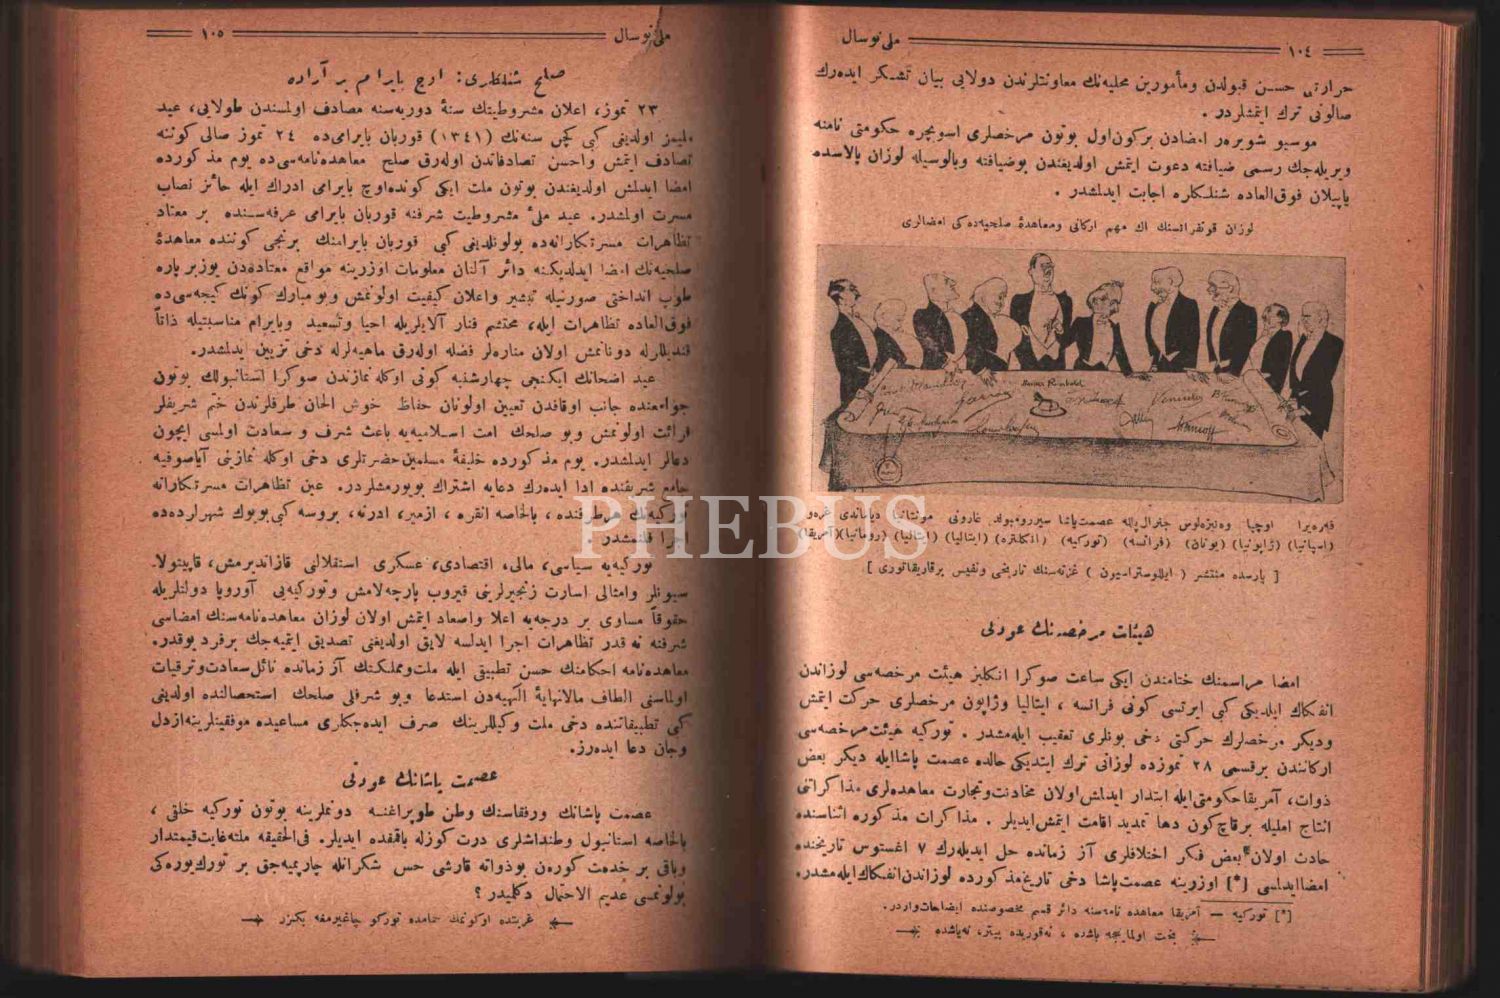 ملی نوسال
١٠٤
حرارتی حسن قبولدن ومأمورین محلیه‌نك معاونتلرندن دولایی بیان تشکر ایده‌رك
صالونی ترك ایتمشلردر .
موسیو شویره‌ر امضادن برکون اول بوتون مرخصلری اسویچره حکومتی نامنه
ویریله‌جك رسمی ضیافته دعوت ایتمش اولدیغندن بوضیافته وبالوسیله لوزان پالاسده
یاپیلان فوق‌العاده شنلکلره اجابت ایدلمشدر .
لوزان قونفرانسنك اك مهم ارکانی ومعاهدهٔ صلحیه‌ده‌کی امضالری
فه‌ره‌یرا اوچیا وه‌نیزه‌لوس جنرال پلله عصمت پاشا سیر رومبولد غارونی مونتانیا دیاماندی غره‌و
(اسپانیا) (ژاپونیا) (یونان) (فرانسه) (تورکیه) (انکلتره) (ایتالیا) (ایتالیا) (رومانیا) (آمریقا)
[ پارسده منتشر ( ایللوستراسیون ) غزته‌سنك تاریخی ونفیس برقاریقاتوری ].
هیئات مرخصه‌نك عودتی
امضا مراسمنك ختامندن ایکی ساعت صوکرا انکلیز هیئت مرخصه‌سی لوزاندن
انفکاك ایلدیکی کبی ایرتسی کونی فرانسه ، ایتالیا وژاپون مرخصلری حرکت ایتمش
ودیکر مرخصلرك حرکتی دخی بونلری تعقیب ایله‌مشدر . تورکیه هیئت مرخصه‌سی
ارکانندن برقسمی ٢٨ تموزده لوزانی ترك ایتدیکی حالده عصمت پاشا ایله دیکر بعض
ذوات، آمریقا حکومتی ایله ابتدار ایدلمش اولان مخادنت وتجارت معاهده‌لری مذاکراتنی
انتاج املیله برقاچ کون دها تمدید اقامت ایتمش ایدیلر . مذاکرات مذکوره اثناسنده
حادث اولان بعض فکر اختلافلری آز زمانده حل ایدیله‌رك ٧ اغستوس تاریخنده
امضا ایدلسی [*] اوزرینه عصمت پاشا دخی تاریخ مذکورده لوزاندن انفکاك ایله‌مشدر.
[*] تورکیه — آمریقا معاهده نامه‌سنه دائر قسم مخصوصنده ایضاحات واردر.
بخت اولمایجه باشده ، نه قوریده بیتر، نه یاشده
ملی نوسال
١٠٥
صلح شنلکلری: اوچ بایرام بر آراده
٢٣ تموز، اعلان مشروطیتك سنهٔ دوریه‌سنه مصادف اولمسندن طولایی، عید
ملیمز اولدیغی کبی کچن سنه‌نك (١٣٤١) قوربان بایرامی‌ده ٢٤ تموز صالی کوننه
تصادف ایتمش واحسن تصادفاتدن اوله‌رق صلح معاهده‌نامه‌سی‌ده یوم مذکورده
امضا ایدلمش اولدیغندن بوتون ملت ایکی کونده اوچ بایرامی ادراك ایله حائز نصاب
مسرت اولمشدر. عید ملیٔ مشروطیت شرفنه قوربان بایرامی عرفه‌سنده بر معتاد
تظاهرات مسرتکارانه‌ده بولونلدیغی کبی قوربان بایرامنك برنجی کوننده معاهدهٔ
صلحیه‌نك امضا ایدلدیکنه دائر آلنان معلومات اوزرینه مواقع معتاده‌دن یوزبر پاره
طوپ انداختی صورتیله تبشیر واعلان کیفیت اولونمش وبو مبارك کونك کیجه‌سی‌ده
فوق‌العاده تظاهرات ایله، محتشم فنار آلایلریله احیا وتسعید وبایرام مناسبتیله ذاتاً
قندیللرله دونانمش اولان مناره‌لر فضله اوله‌رق ماهیه‌لرله دخی تزیین ایدلمشدر.
عید اضحانك ایکنجی چهارشنبه کونی اوکله نمازندن صوکرا استانبولك بوتون
جوامعنده جانب اوقافدن تعیین اولونان حفاظ خوش الحان طرفلرندن ختم شریفلر
قرائت اولونمش وبو صلحك امت اسلامیه‌یه باعث شرف و سعادت اولمسی ایچون
دعالر ایدلمشدر. یوم مذکورده خلیفهٔ مسلمین حضرتلری دخی اوکله نمازینی آیاصوفیه
جامع شریفنده ادا ایده‌رك دعایه اشتراك بویورمشلردر. عین تظاهرات مسرتکارانه
تورکیه‌نك هر طرفنده ، بالخاصه انقره ، ازمیر، ادرنه، بروسه کبی بویوك شهرلرده‌ده
اجرا قلنمشدر .
تورکیه‌یه سیاسی، مالی، اقتصادی، عسکری استقلالنی قازاندیرمش، قاپیتولا-
سیونلر وامثالی اسارت زنجیرلرینی قیروب پارچه‌لامش وتورکیه‌یی آوروپا دولتلریله
حقوقاً مساوی بر درجه‌یه اعلا واصعاد ایتمش اولان لوزان معاهده‌نامه‌سنك امضاسی
شرفنه نه قدر تظاهرات اجرا ایدلسه لایق اولدیغنی تصدیق ایتمیه‌جك برفرد یوقدر.
معاهده‌نامه احکامنك حسن تطبیقی ایله ملت ومملکتك آز زمانده نائل سعادت وترقیات
اولماسنی الطاف مالانهایهٔ الهیه‌دن استدعا وبو شرفلی صلحك استحصالنده اولدیغی
کبی تطبیقاتنده دخی ملت وکیللرینك صرف ایده‌جکلری مساعیده موفقیتلرینه ازدل
وجان دعا ایده‌رز.
عصمت پاشانك عودتی
عصمت پاشانك ورفقاسنك وطن طوپراغنه دونملرینه بوتون تورکیه خلقی ،
بالخاصه استانبول وطنداشلری درت کوزله باقمقده ایدیلر. فی‌الحقیقه ملته غایت قیمتدار
وباقی بر خدمت کوره‌ن بوذواته قارشی حس شکرانله چارپمیه‌جق بر تورك یوره‌کی
بولونمسی عدیم الاحتمال دکلمیدر ؟
غربتده اوکونمك حمامده تورکو چاغیرمغه بکزر
PHEBUS